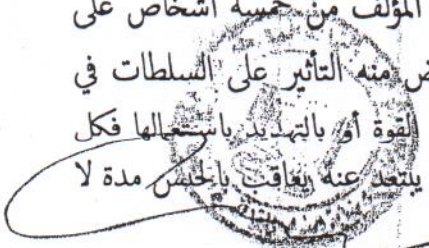 المؤلف من خمسة أشخاص على
ض منه التأثير على السلطات في
القوة أو بالتهديد باستعمالها فكل
يبتعد عنه يعاقب بالحبس مدة لا